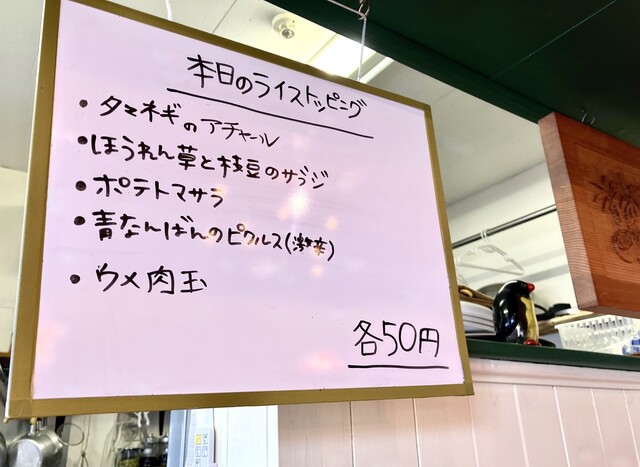 本日のライストッピング
・タマネギのアチャール
・ほうれん草と枝豆のサブジ
・ポテトマサラ
・青なんばんのピクルス(激辛)
・ウメ肉玉
各50円